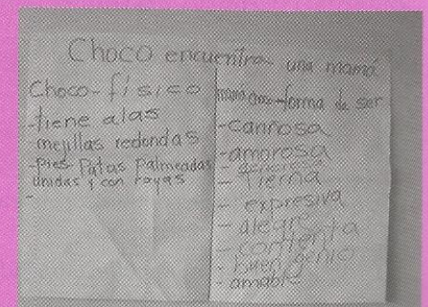 Choco encuentra una mamá
Choco-físico
-tiene alas
-mejillas redondas
-pies Patas Palmeadas
unidas y con rayas
-
mamá -forma de ser
-cariñosa
-amorosa
-
- Tierna
- expresiva
- alegre
- contenta
- buen genio
- amable